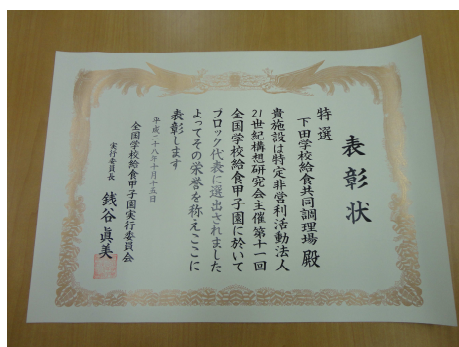 表彰状
特選
下田学校給食共同調理場 殿
貴施設は特定非営利活動法人
21世紀構想研究会主催第十一回
全国学校給食甲子園に於いて
ブロック代表に選出されました
よってその栄誉を称えここに
表彰します
平成二十八年十月十五日
全国学校給食甲子園実行委員会
実行委員長 銭谷眞美